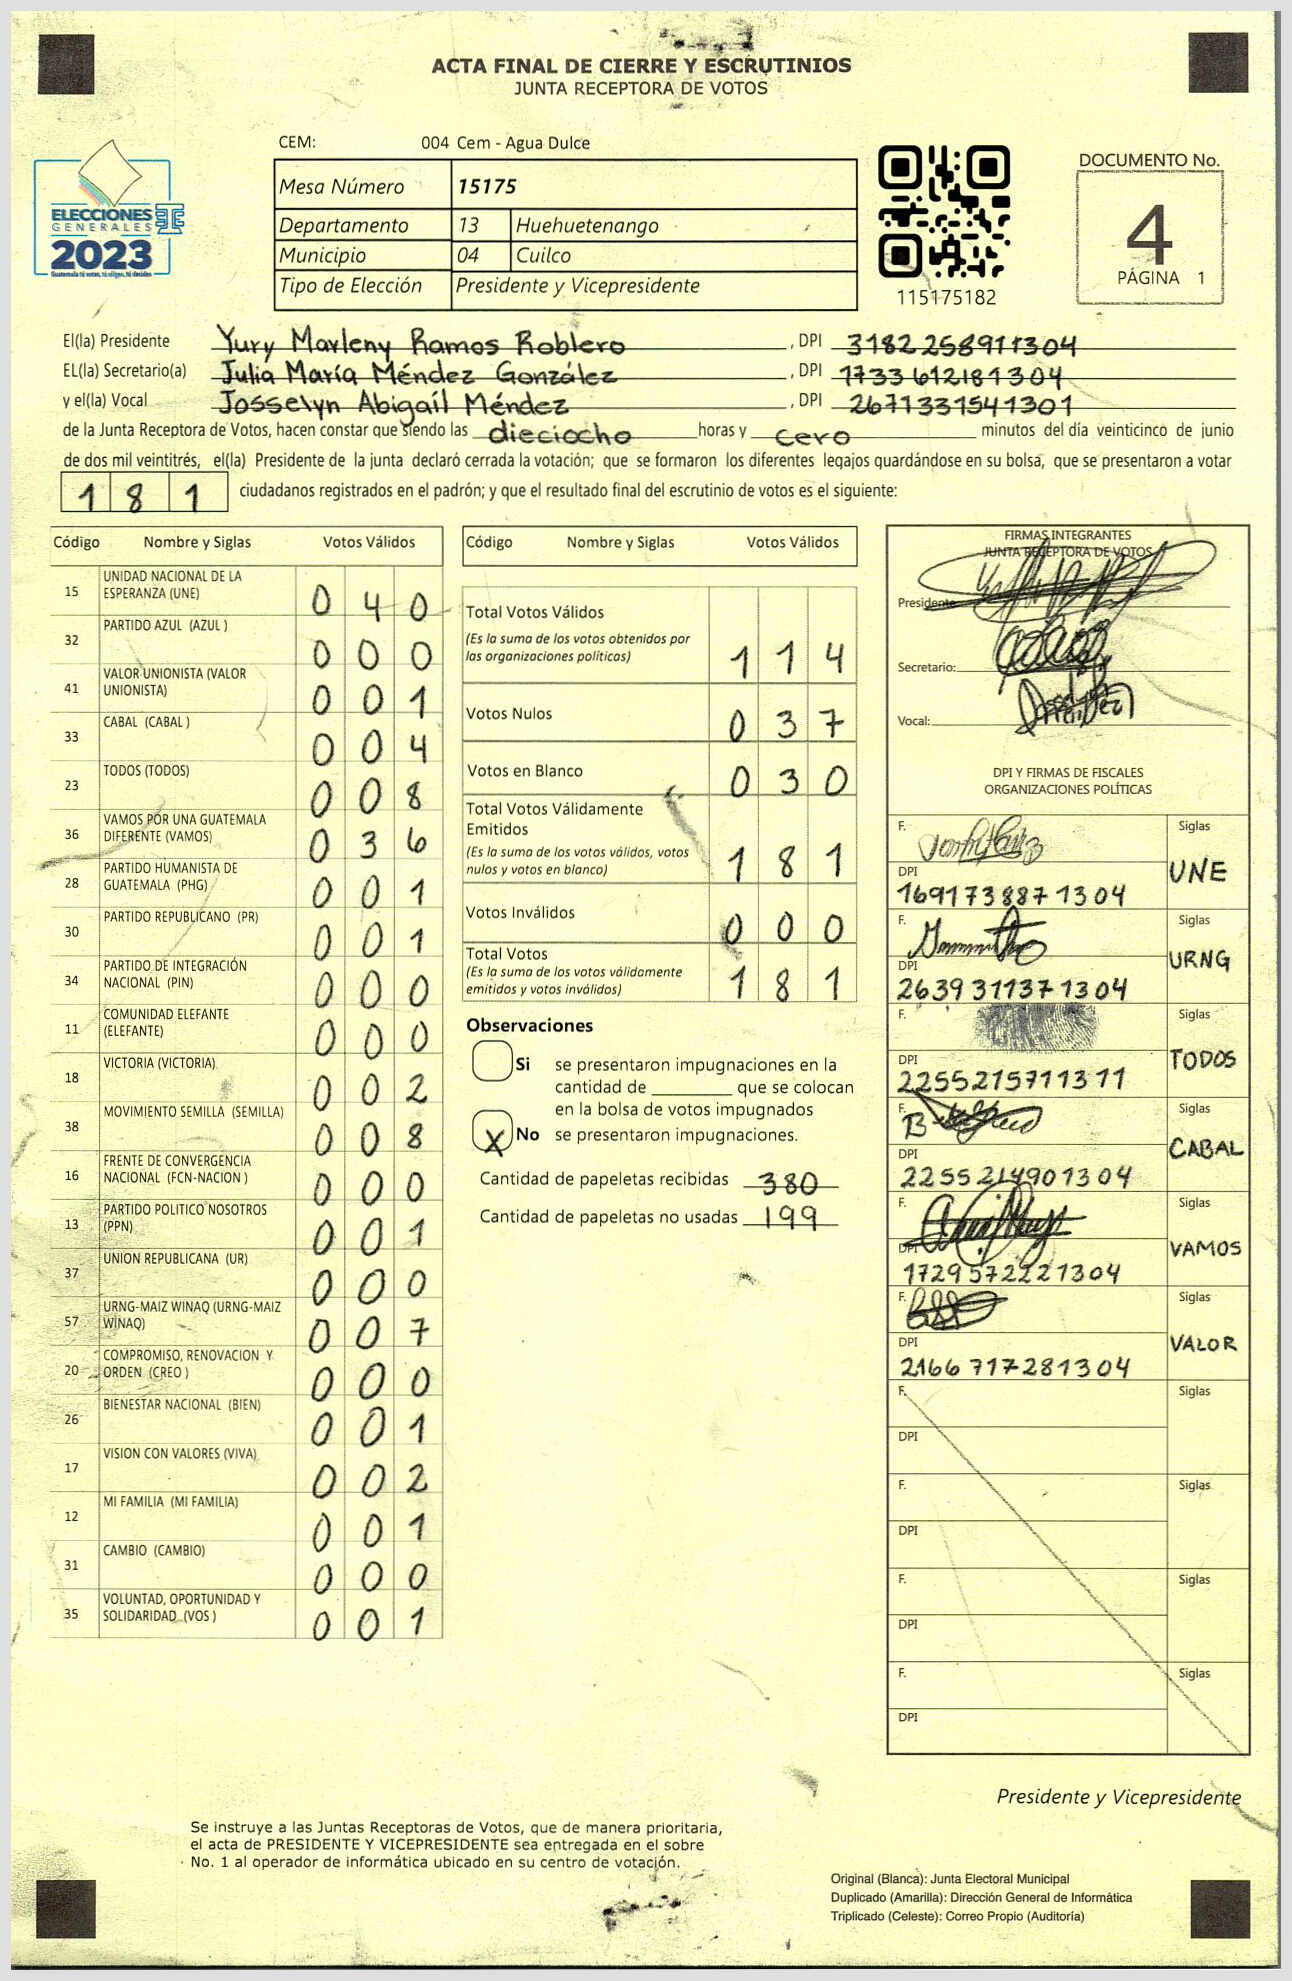 ACTA FINAL DE CIERRE Y ESCRUTINIOS
JUNTA RECEPTORA DE VOTOS
CEM: 004 Cem - Agua Dulce
ELECCIONES
GENERALES
2023
Guatemala tú votas, tú eliges, tú decides
Mesa Número 15175
Departamento 13 Huehuetenango
Municipio 04 Cuilco
Tipo de Elección Presidente y Vicepresidente
115175182
DOCUMENTO No.
4
PÁGINA 1
El(la) Presidente Yury Marleny Ramos Roblero, DPI 3182258911304
EL(la) Secretario(a) Julia María Méndez González, DPI 1733612181304
y el(la) Vocal Josselyn Abigaíl Méndez, DPI 2671331541301
de la Junta Receptora de Votos, hacen constar que siendo las dieciocho horas y cero minutos del día veinticinco de junio
de dos mil veintitrés, el(la) Presidente de la junta declaró cerrada la votación; que se formaron los diferentes legajos guardándose en su bolsa, que se presentaron a votar
181 ciudadanos registrados en el padrón; y que el resultado final del escrutinio de votos es el siguiente:
Código Nombre y Siglas Votos Válidos
15 UNIDAD NACIONAL DE LA
ESPERANZA (UNE) 0 4 0
32 PARTIDO AZUL (AZUL ) 0 0 0
41 VALOR UNIONISTA (VALOR
UNIONISTA) 0 0 1
33 CABAL (CABAL ) 0 0 4
23 TODOS (TODOS) 0 0 8
36 VAMOS POR UNA GUATEMALA
DIFERENTE (VAMOS) 0 3 6
28 PARTIDO HUMANISTA DE
GUATEMALA (PHG) 0 0 1
30 PARTIDO REPUBLICANO (PR) 0 0 1
34 PARTIDO DE INTEGRACIÓN
NACIONAL (PIN) 0 0 0
11 COMUNIDAD ELEFANTE
(ELEFANTE) 0 0 0
18 VICTORIA (VICTORIA) 0 0 2
38 MOVIMIENTO SEMILLA (SEMILLA) 0 0 8
16 FRENTE DE CONVERGENCIA
NACIONAL (FCN-NACION ) 0 0 0
13 PARTIDO POLITICO NOSOTROS
(PPN) 0 0 1
37 UNION REPUBLICANA (UR) 0 0 0
57 URNG-MAIZ WINAQ (URNG-MAIZ
WINAQ) 0 0 7
20 COMPROMISO, RENOVACION Y
ORDEN (CREO ) 0 0 0
26 BIENESTAR NACIONAL (BIEN) 0 0 1
17 VISION CON VALORES (VIVA) 0 0 2
12 MI FAMILIA (MI FAMILIA) 0 0 1
31 CAMBIO (CAMBIO) 0 0 0
35 VOLUNTAD, OPORTUNIDAD Y
SOLIDARIDAD (VOS ) 0 0 1
Código Nombre y Siglas Votos Válidos
Total Votos Válidos
(Es la suma de los votos obtenidos por
las organizaciones políticas) 1 1 4
Votos Nulos 0 3 7
Votos en Blanco 0 3 0
Total Votos Válidamente
Emitidos
(Es la suma de los votos válidos, votos
nulos y votos en blanco) 1 8 1
Votos Inválidos 0 0 0
Total Votos
(Es la suma de los votos válidamente
emitidos y votos inválidos) 1 8 1
Observaciones
Si se presentaron impugnaciones en la
cantidad de ________ que se colocan
en la bolsa de votos impugnados
X No se presentaron impugnaciones.
Cantidad de papeletas recibidas 380
Cantidad de papeletas no usadas 199
FIRMAS INTEGRANTES
JUNTA RECEPTORA DE VOTOS
Presidente
Secretario:
Vocal:
DPI Y FIRMAS DE FISCALES
ORGANIZACIONES POLÍTICAS
F. Siglas
DPI UNE
1691738871304
F. Siglas
DPI URNG
2639311371304
F. Siglas
DPI TODOS
2255215711311
F. Siglas
DPI CABAL
2255214901304
F. Siglas
DPI VAMOS
1729572221304
F. Siglas
DPI VALOR
2166717281304
F. Siglas
DPI
F. Siglas
DPI
F. Siglas
DPI
F. Siglas
DPI
Presidente y Vicepresidente
Se instruye a las Juntas Receptoras de Votos, que de manera prioritaria,
el acta de PRESIDENTE Y VICEPRESIDENTE sea entregada en el sobre
No. 1 al operador de informática ubicado en su centro de votación.
Original (Blanca): Junta Electoral Municipal
Duplicado (Amarilla): Dirección General de Informática
Triplicado (Celeste): Correo Propio (Auditoría)